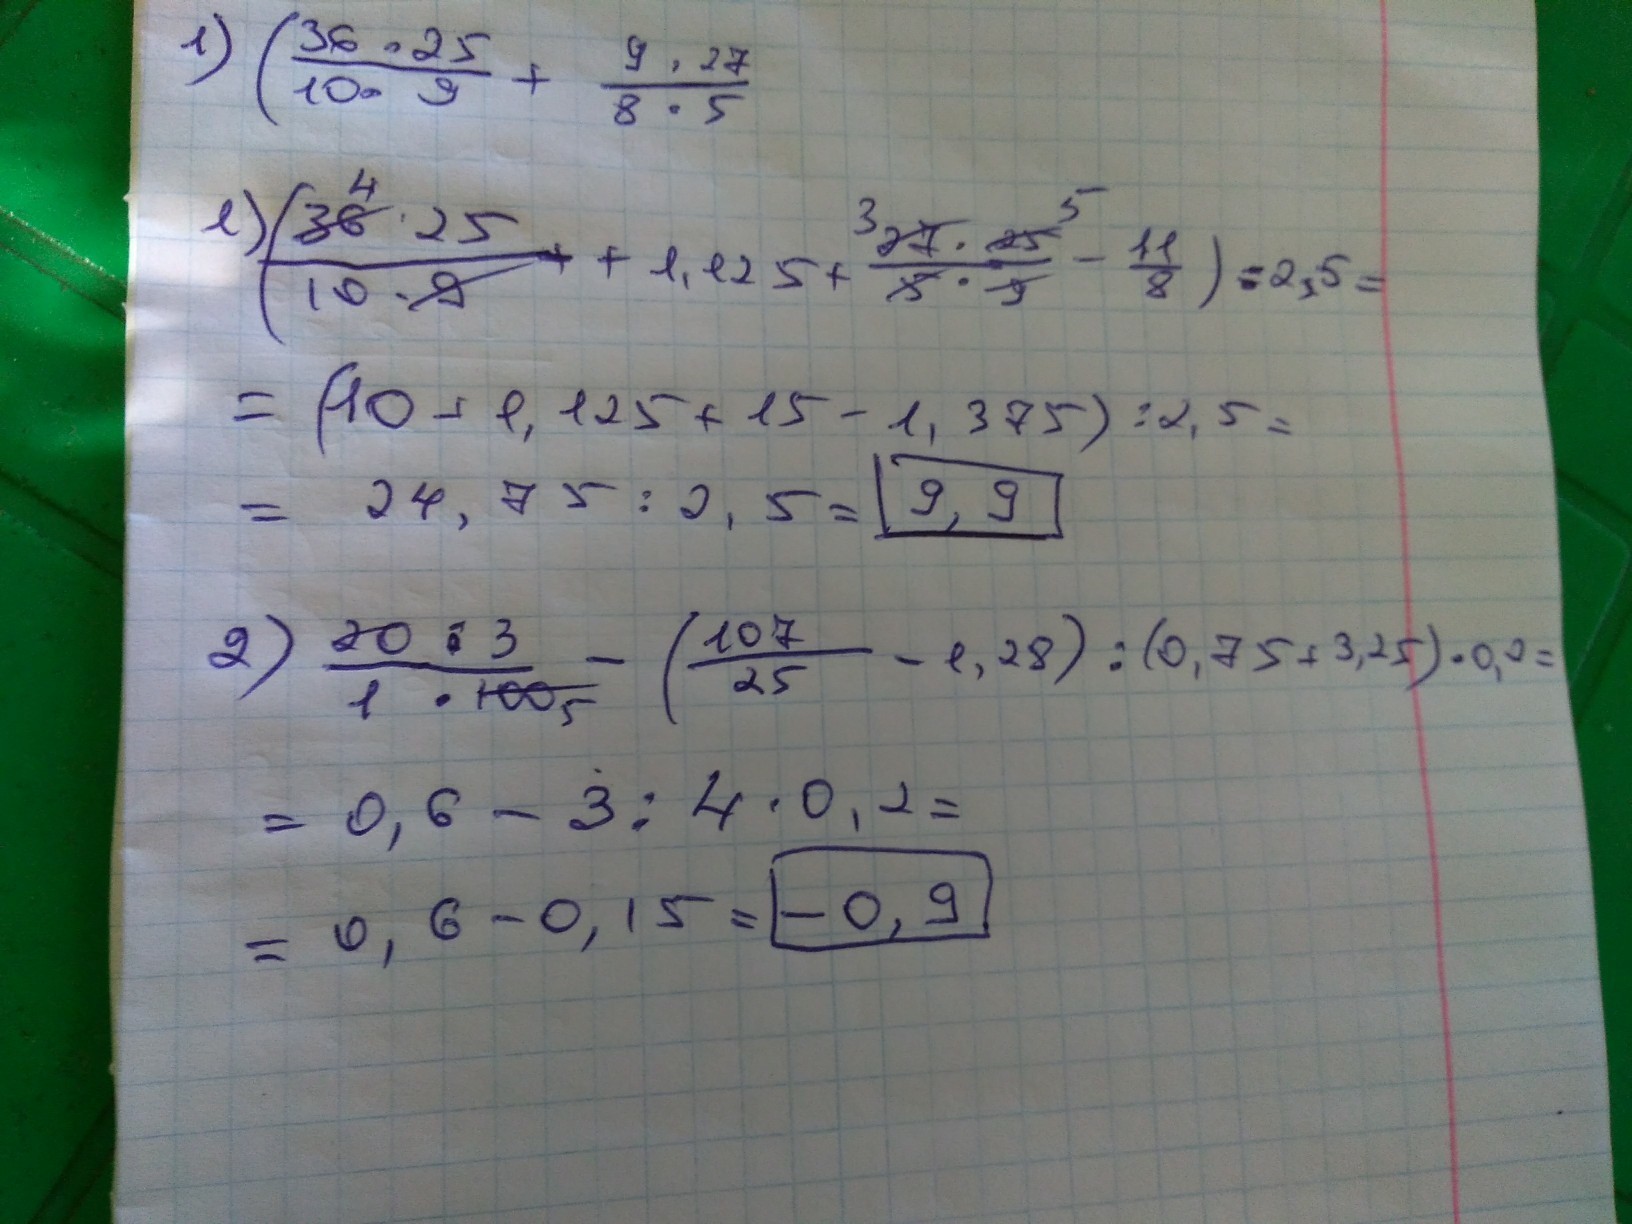 1) (36 · 25 / 10 · 9 + 9 · 27 / 8 · 5
1) (36 4 · 25 / 10 · 9 + + 1,125 + 3 27 · 25 5 / 5 · 9 - 11/8) : 2,5 =
= (10 + 1,125 + 15 - 1,375) : 2,5 =
= 24,75 : 2,5 = 9,9
2) 20 · 3 / 1 · 100 5 - (107 / 25 - 1,28) : (0,75 + 3,25) · 0,2 =
= 0,6 - 3 : 4 · 0,2 =
= 0,6 - 0,15 = -0,9